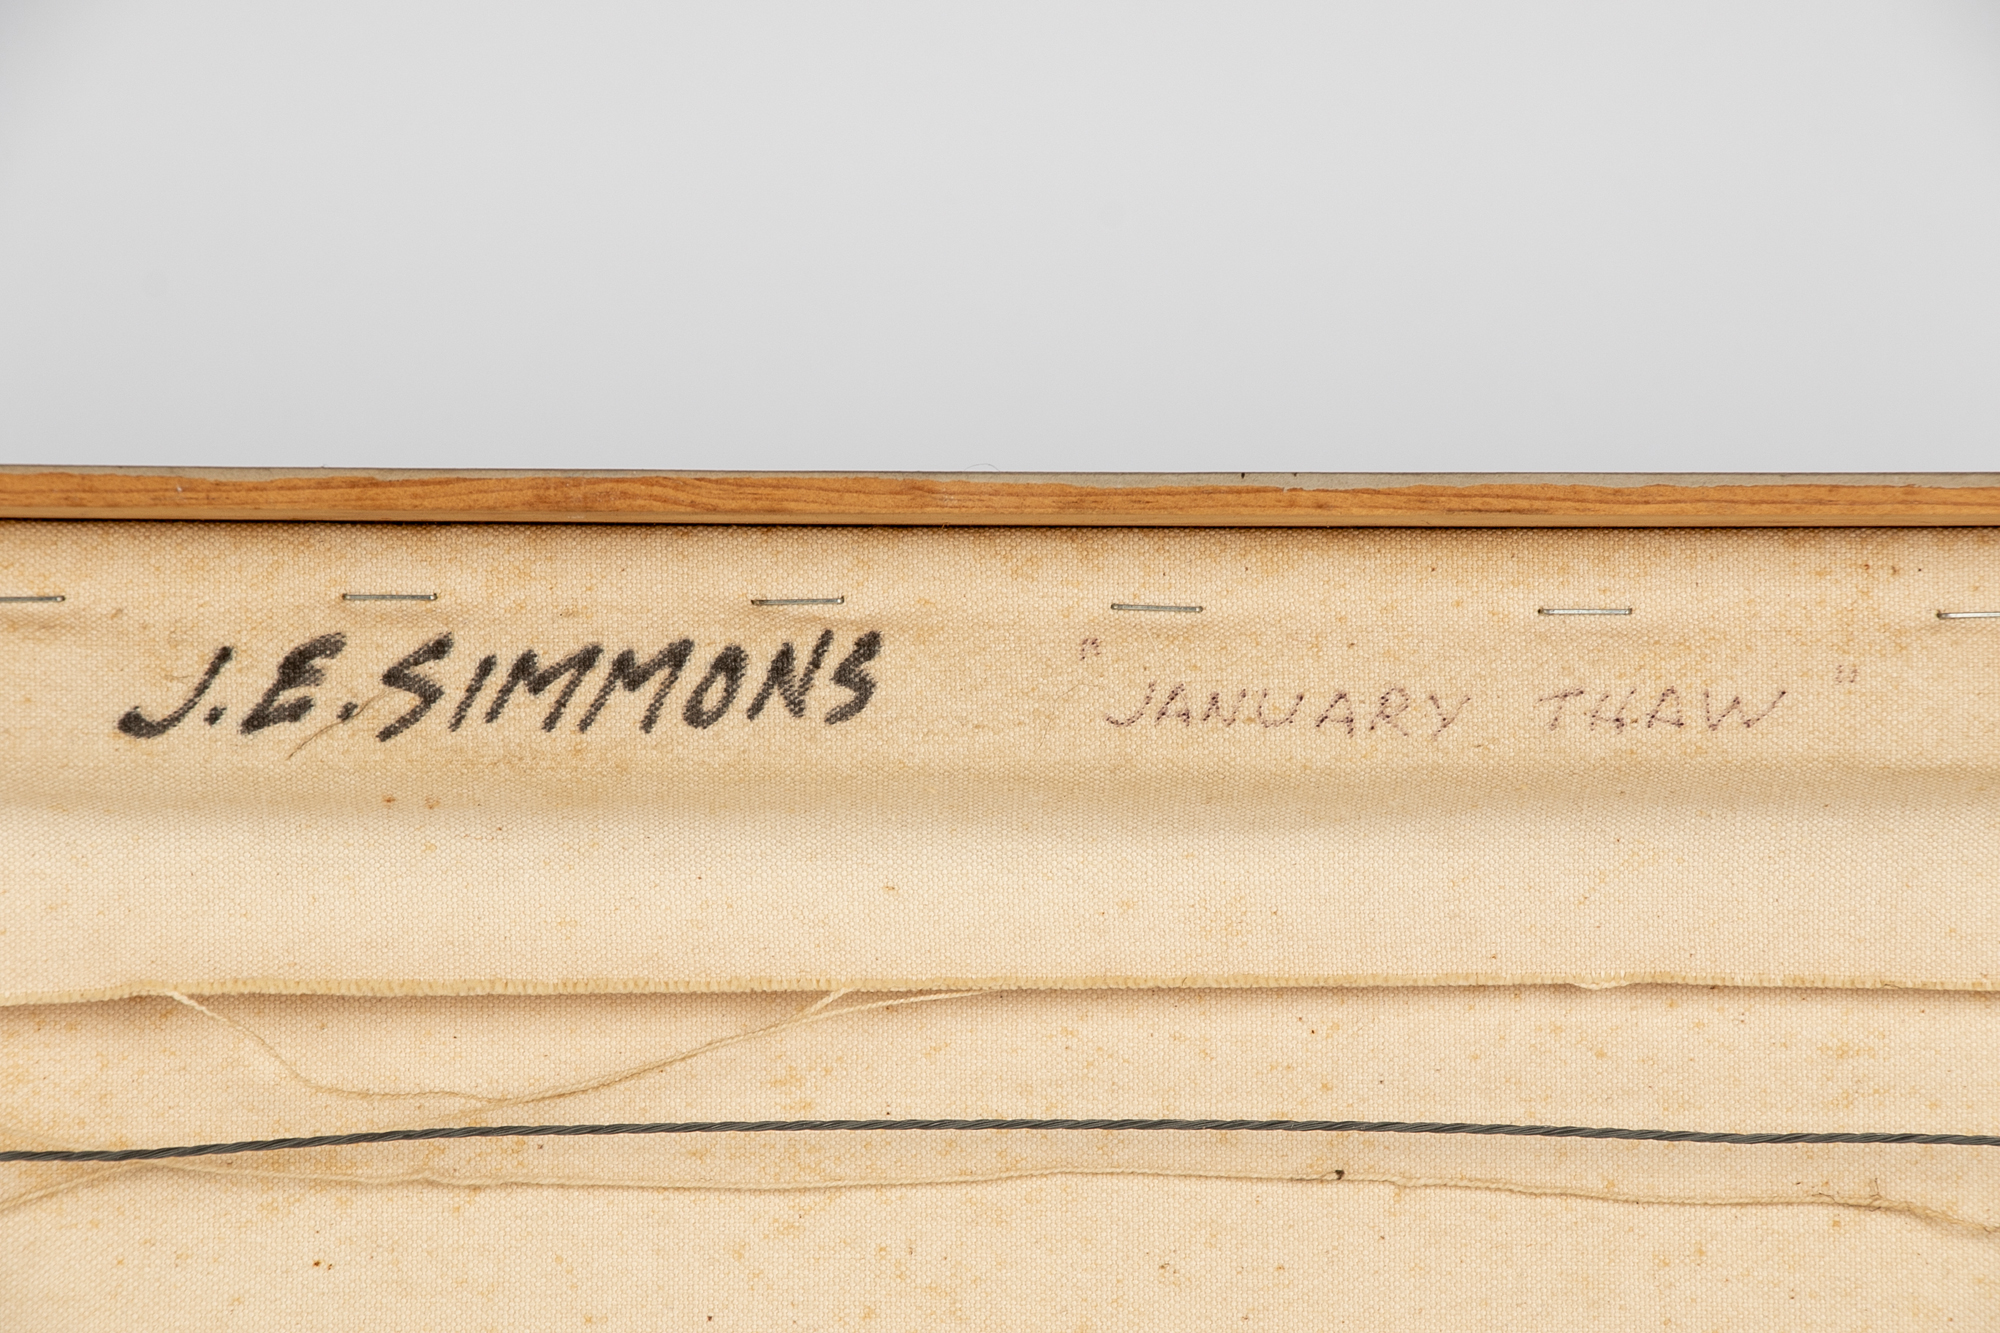 J.E. SIMMONS "JANUARY THAW"